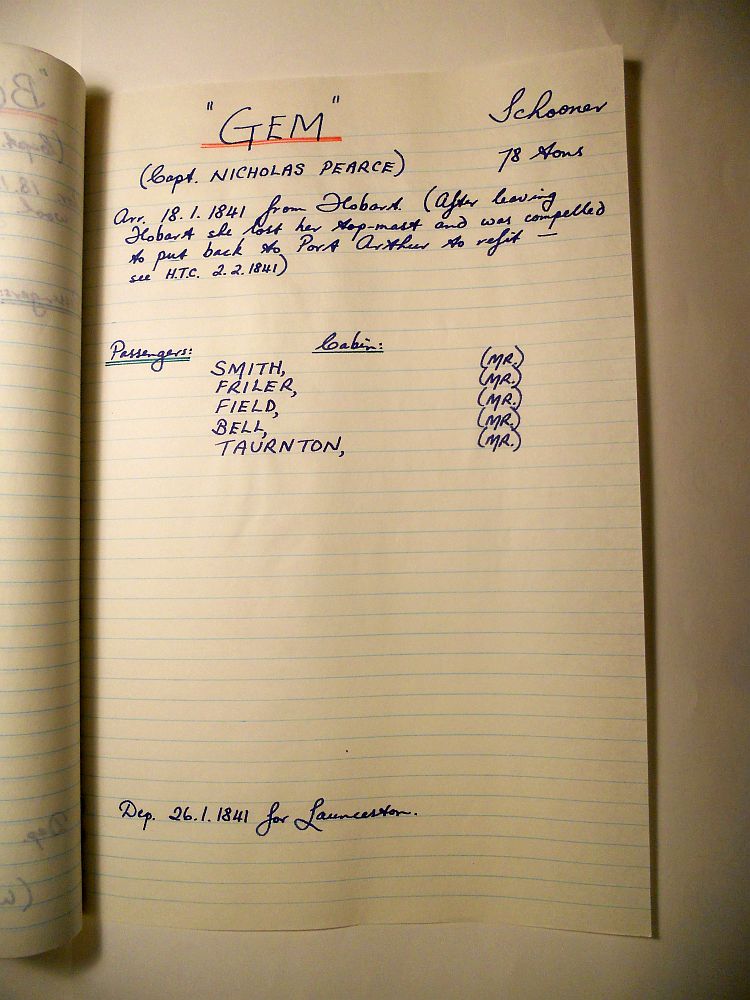 "GEM" Schooner
(Capt. NICHOLAS PEARCE) 78 tons
Arr. 18.1.1841 from Hobart. (After leaving
Hobart she lost her top-mast and was compelled
to put back to Port Arthur to refit —
see H.T.C. 2.2.1841)
Passengers: Cabin:
SMITH, (MR.)
FRILER, (MR.)
FIELD, (MR.)
BELL, (MR.)
TAURNTON, (MR.)
Dep. 26.1.1841 for Launceston.